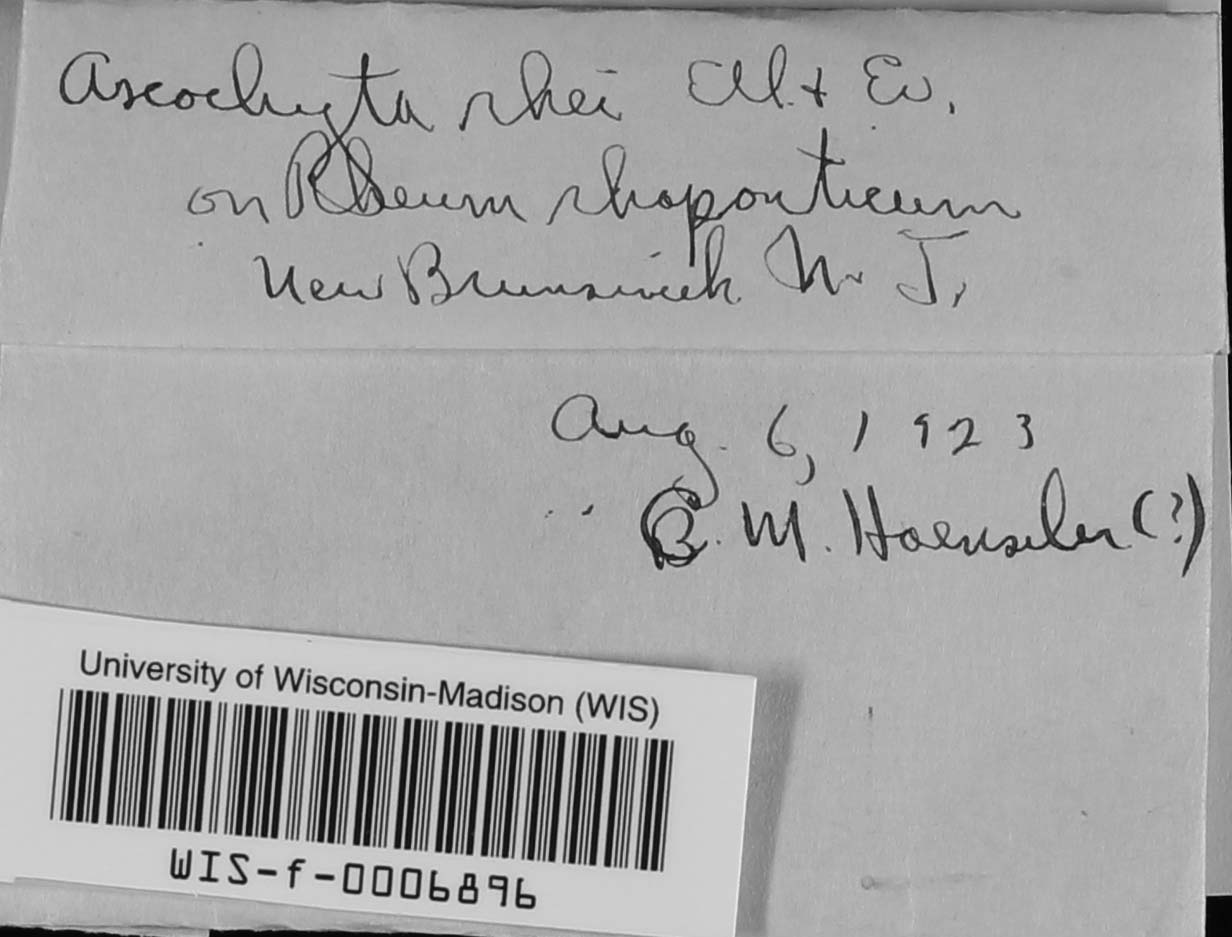 Ascochyta rhei Ell. + Ev.
on Rheum rhaponticum
New Brunswick N. J.
Aug. 6, 1923
M. Haenseler (?)
University of Wisconsin-Madison (WIS)
WIS-f-0006896